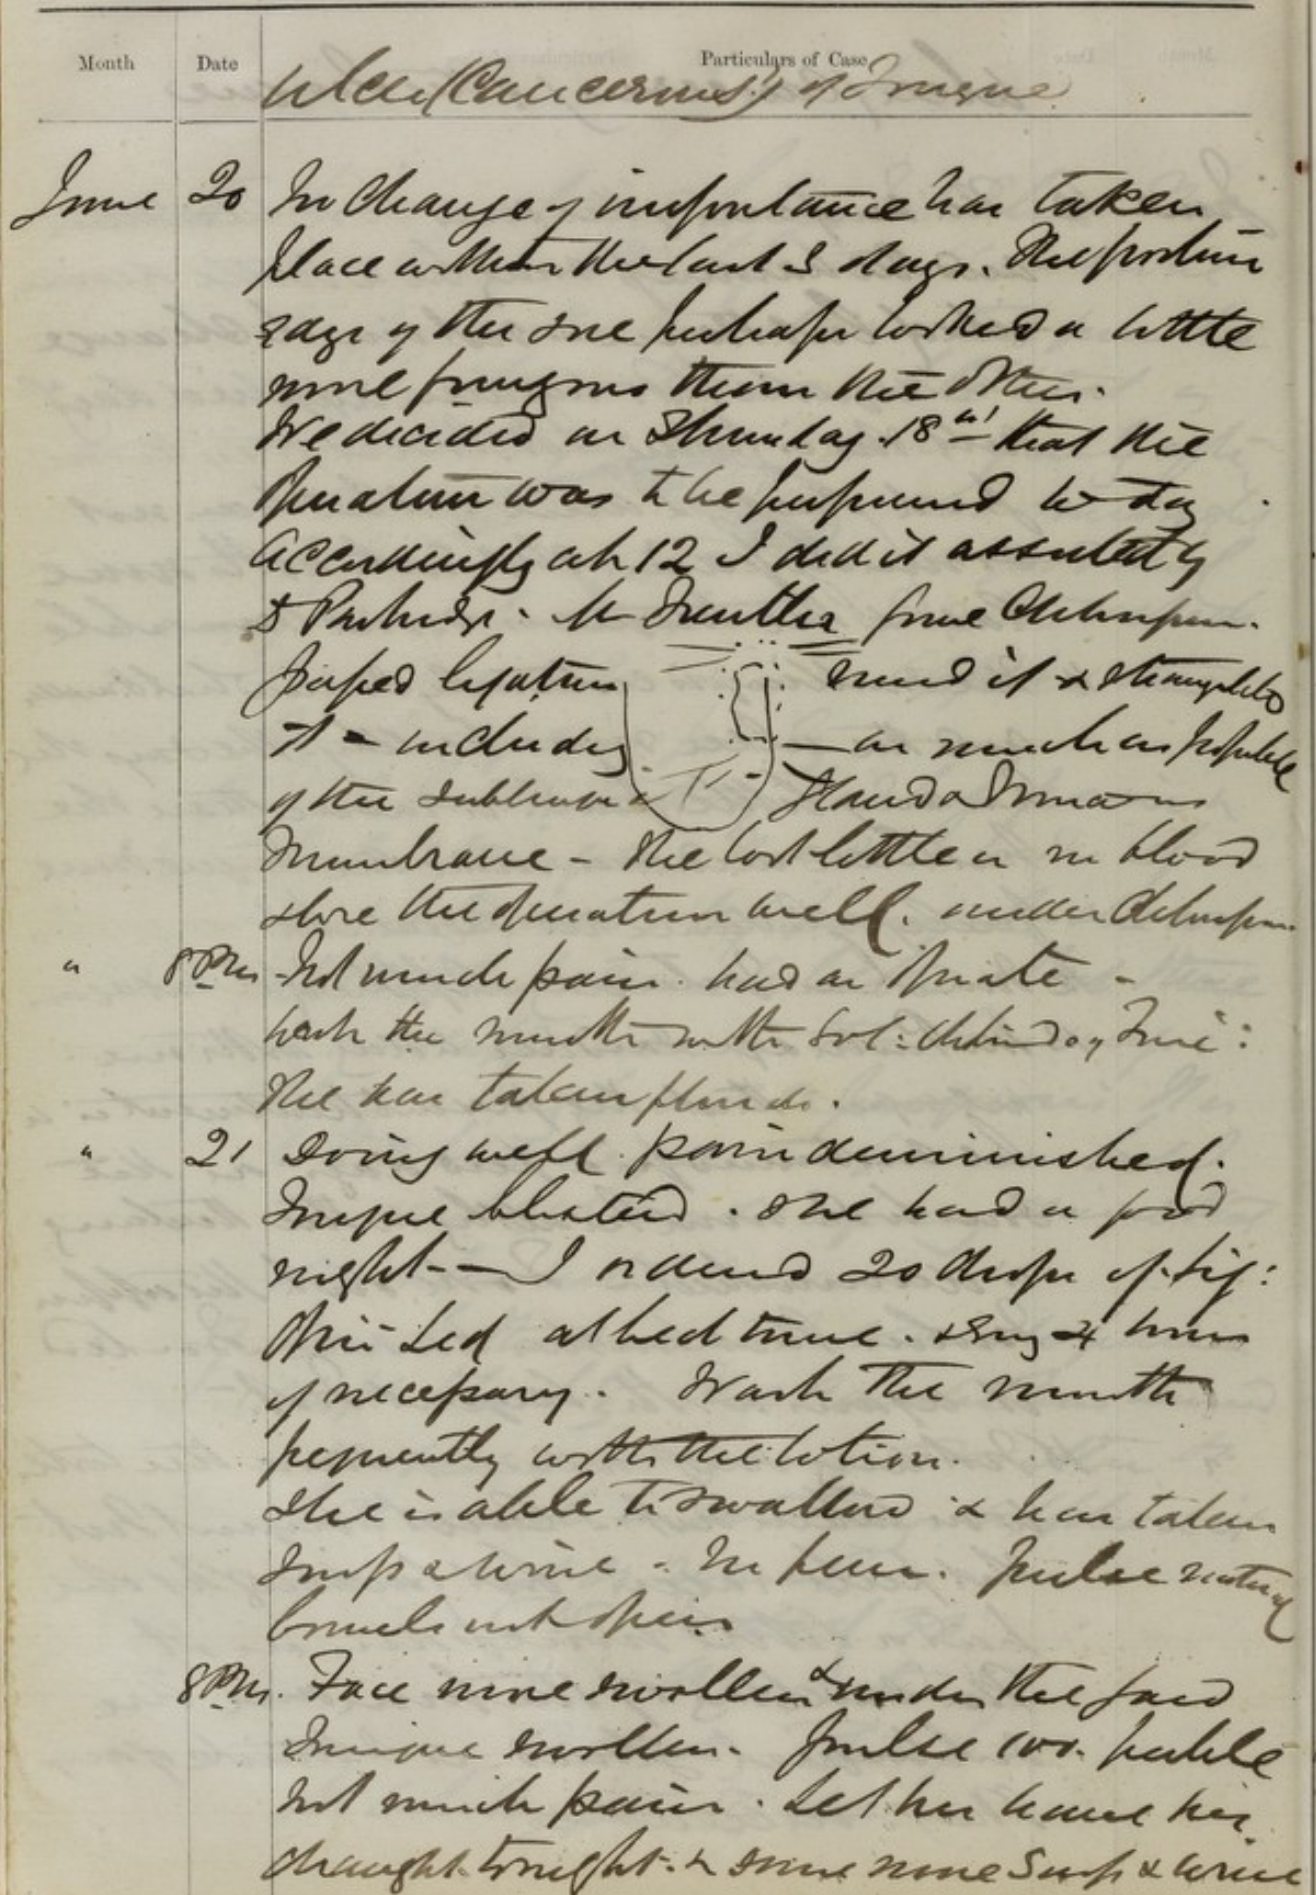 Month Date Particulars of Case
Ulcer (Cancerous?) of Tongue
June 20 No change of importance has taken
place within the last 3 days. The posterior
edge of the sore perhaps looked a little
more fungous than the other.
We decided on Thursday 18th that the
operation was to be performed to day
Accordingly at 12 I did it assisted by
Dr Partridge. Mr gave Chloroform.
passed ligatures round it & strangulated
it - including as much as possible
of the sublingual gland & mucous
membrane - She lost little or no blood
bore the operation well. under Chloroform
" 8 PM Not much pain. had an opiate -
wash the mouth with Sol: Chloride of Zinc:
She has taken fluids.
" 21 Doing well. pain deminished.
Tongue bloated. She had a good
night - I ordered 20 drops of Liq:
Opii Sed at bed time. & every 4 hours
if necessary. Wash the mouth
frequently with the lotion.
She is able to swallow & has taken
soup & wine - No fever. Pulse natural
bowels not open
8 PM. Face more swollen & under the jaw
Tongue swollen. Pulse 100. feeble
not much pain. Let her have her
draught tonight. & some more Soup & wine